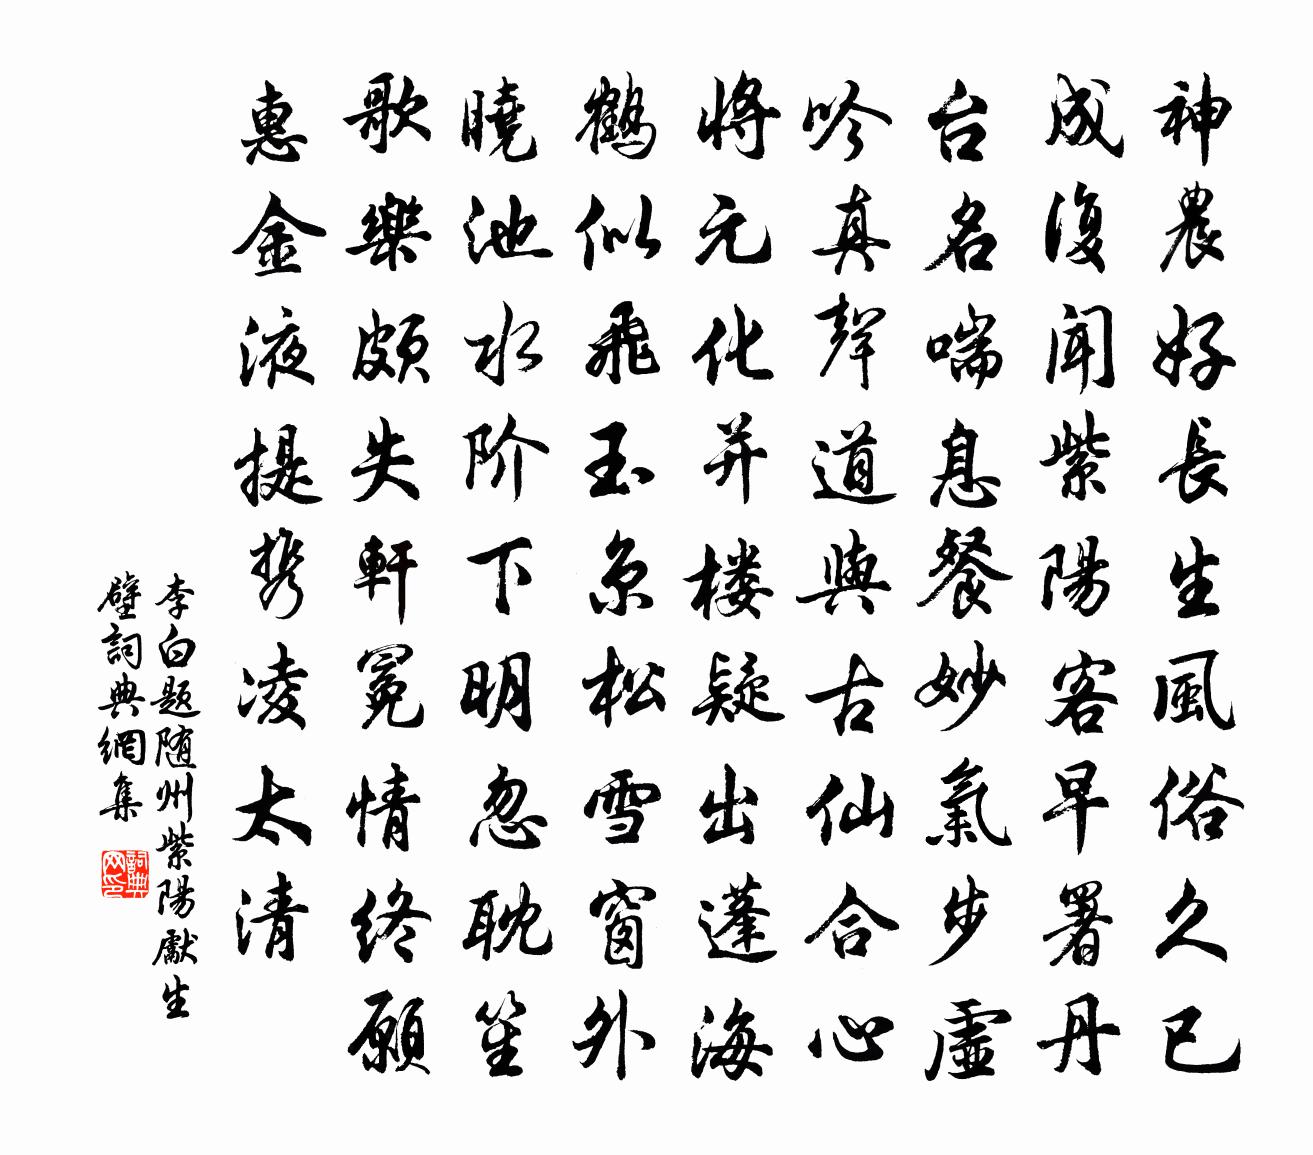 神農好長生風俗久已
成復聞紫陽客早署丹
台名喘息餐妙氣步虛
吟真聲道與古仙合心
將元化并楼疑出蓬海
鶴似飛玉京松雪窗外
曉池水阶下明忽耽笙
歌樂頗失軒冕情终願
惠金液提携凌太清
李白题随州紫陽獻生
壁詞典網集
詞典
网印